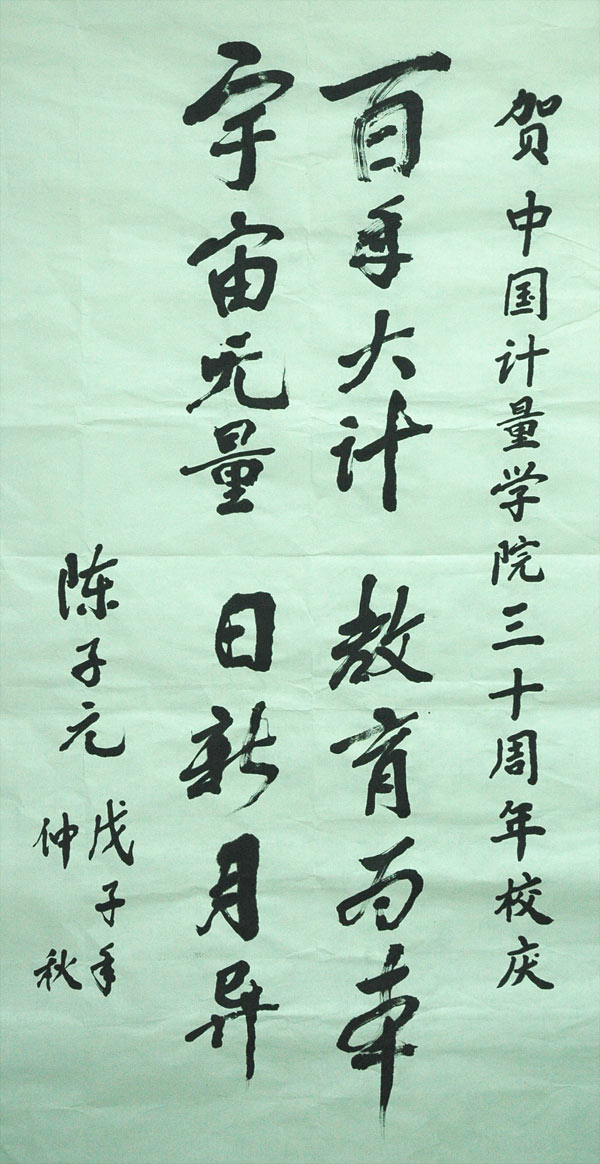 贺中国计量学院三十周年校庆
百年大计 教育为本
宇宙无量 日新月异
陈子元
戊子年
仲秋